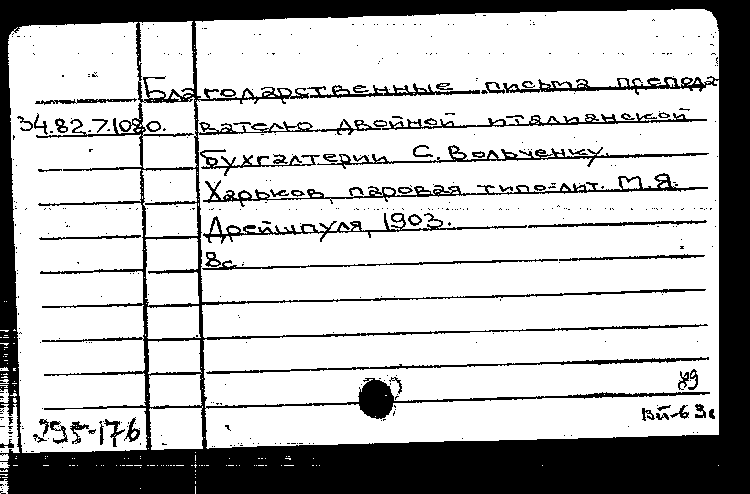 Благодарственные письма препода
34.82.7.1080. вателю двойной итальянской
бухгалтерии С. Вольченку.
Харьков, паровая типо-лит. М.Я.
Дрейшпуля, 1903.
8с.
89
295-176